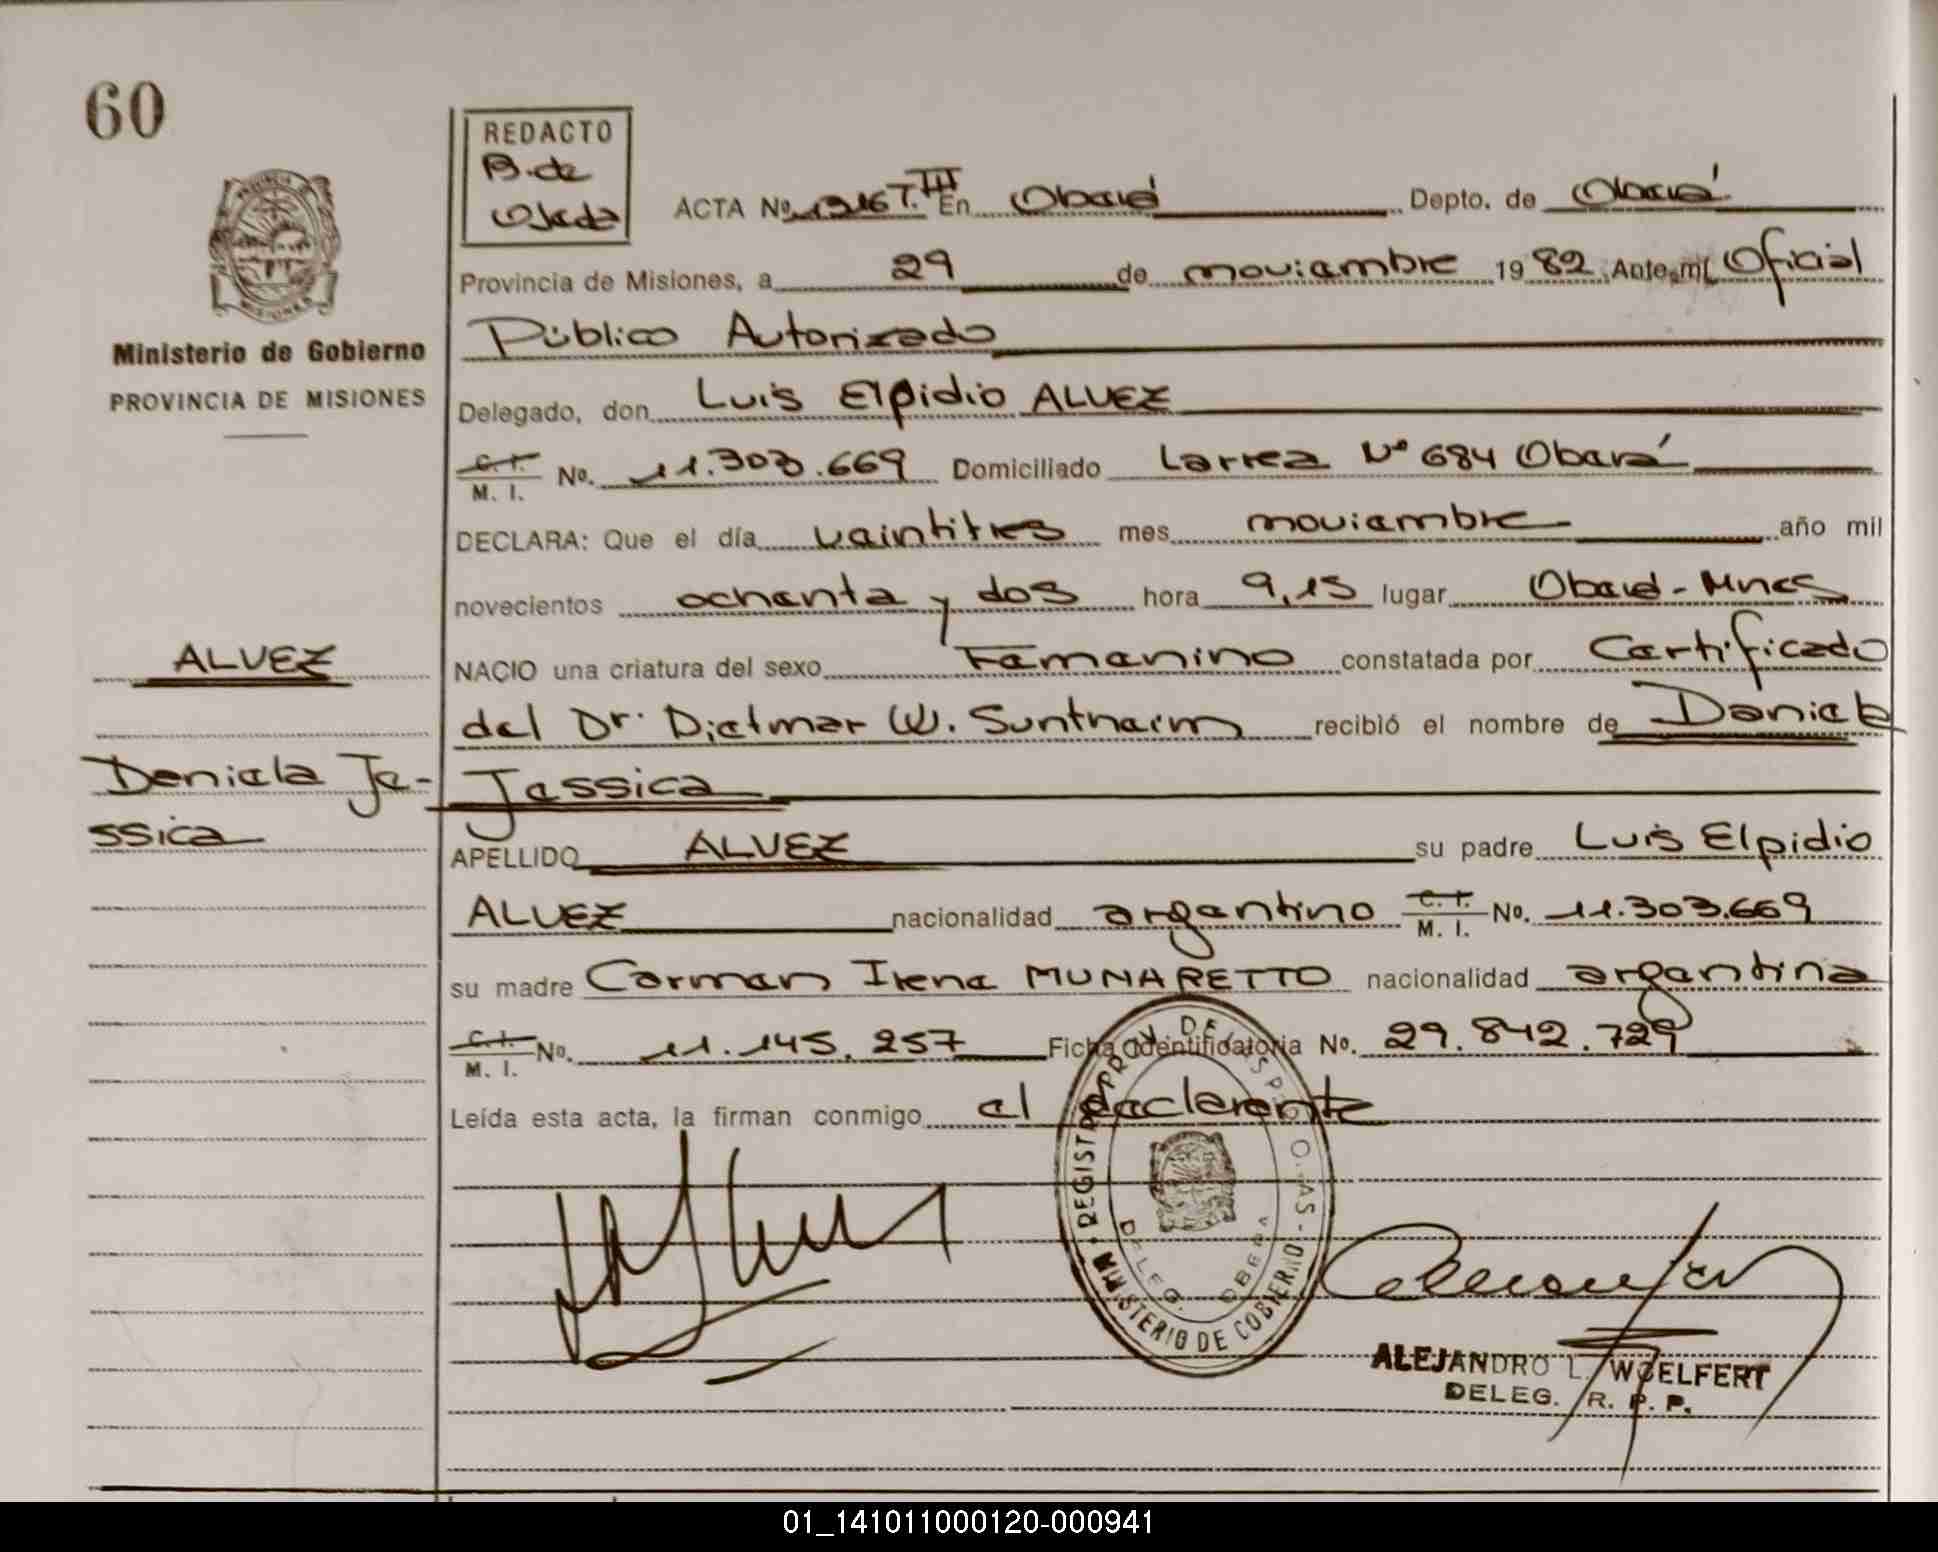 60
REDACTO
B. de
Ojeda
ACTA Nº 1316 T. III En Oberá Depto. de Oberá
Provincia de Misiones, a 29 de noviembre 19 82 Ante mí Oficial
Público Autorizado
Ministerio de Gobierno
PROVINCIA DE MISIONES
Delegado, don Luis Elpidio ALVEZ
C. I. / M. I. No. 11.303.669 Domiciliado Larrea Nº 684 Oberá
DECLARA: Que el día veintitres mes noviembre año mil
novecientos ochenta y dos hora 9,15 lugar Oberá - Mnes
ALVEZ
NACIO una criatura del sexo Femenino constatada por Certificado
del Dr. Dietmar W. Suntheim recibió el nombre de Daniela
Daniela Je-
ssica
Jessica
APELLIDO ALVEZ su padre Luis Elpidio
ALVEZ nacionalidad argentino C. I. / M. I. No. 11.303.669
su madre Carmen Irene MUNARETTO nacionalidad argentina
C. I. / M. I. No. 11.145.257 Ficha Identificatoria No. 29.842.729
Leída esta acta, la firman conmigo el declarante
REGISTRO PROV. DE LAS PERSONAS
DELEG. OBERA
MINISTERIO DE GOBIERNO
ALEJANDRO L. WOELFERT
DELEG. R. P. P.
01_141011000120-000941